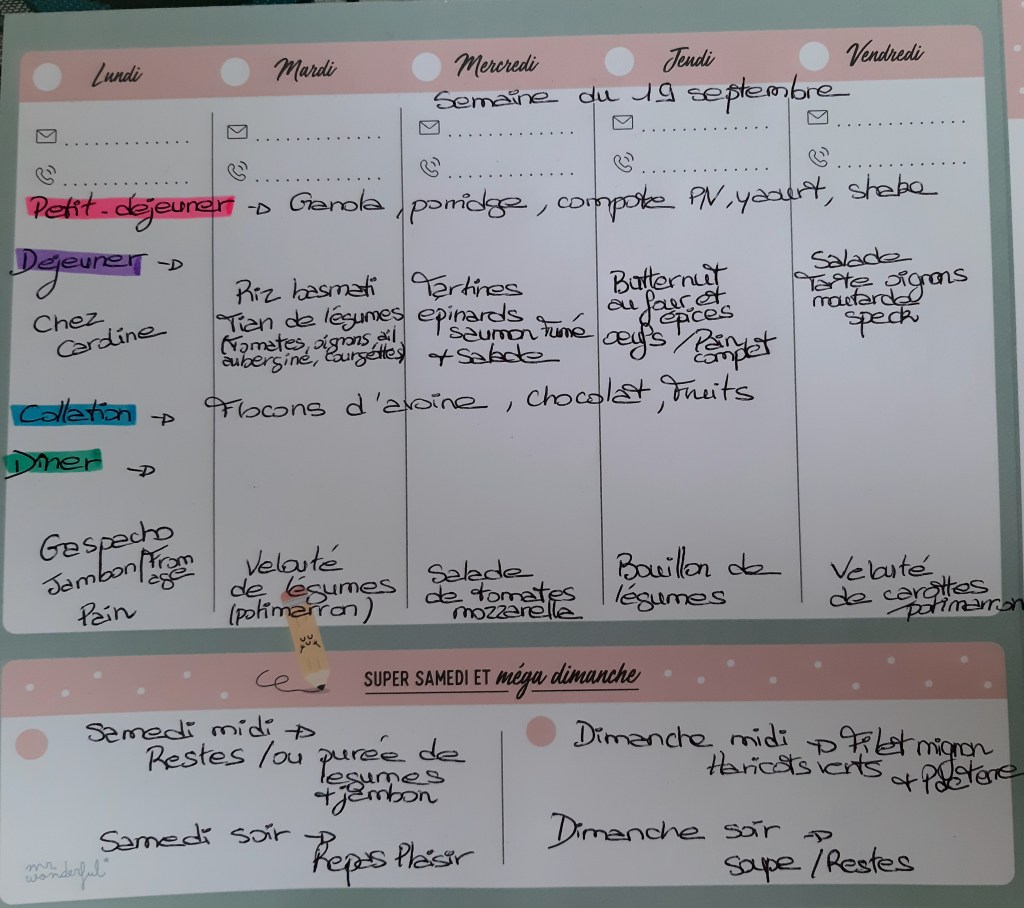 Lundi
Mardi
Mercredi
Jeudi
Vendredi
Semaine du 19 septembre
Petit-déjeuner → Granola, porridge, compote PN, yaourt, skaba
Déjeuner →
Chez
Cardine
Riz basmati
Tian de légumes
(Tomates, oignons, ail
aubergine, courgettes)
Tartines
epinards
saumon fumé
+ Salade
Butternut
au four et
épices
oeufs / Pain
complet
Salade
Tarte oignons
moutarde
speck
Collation → Flocons d'avoine, chocolat, Fruits
Dîner →
Gaspacho
Jambon/From
age
Pain
Velouté
de légumes
(potimarron)
Salade
de tomates
mozzarella
Bouillon de
légumes
Velouté
de carottes
/potimarron
SUPER SAMEDI ET méga dimanche
Samedi midi →
Restes /ou purée de
légumes
+ jambon
Samedi soir →
Repas Plaisir
Dimanche midi → Filet mignon
Haricots verts + P de terre
Dimanche soir →
soupe / Restes
mr.
wonderful*